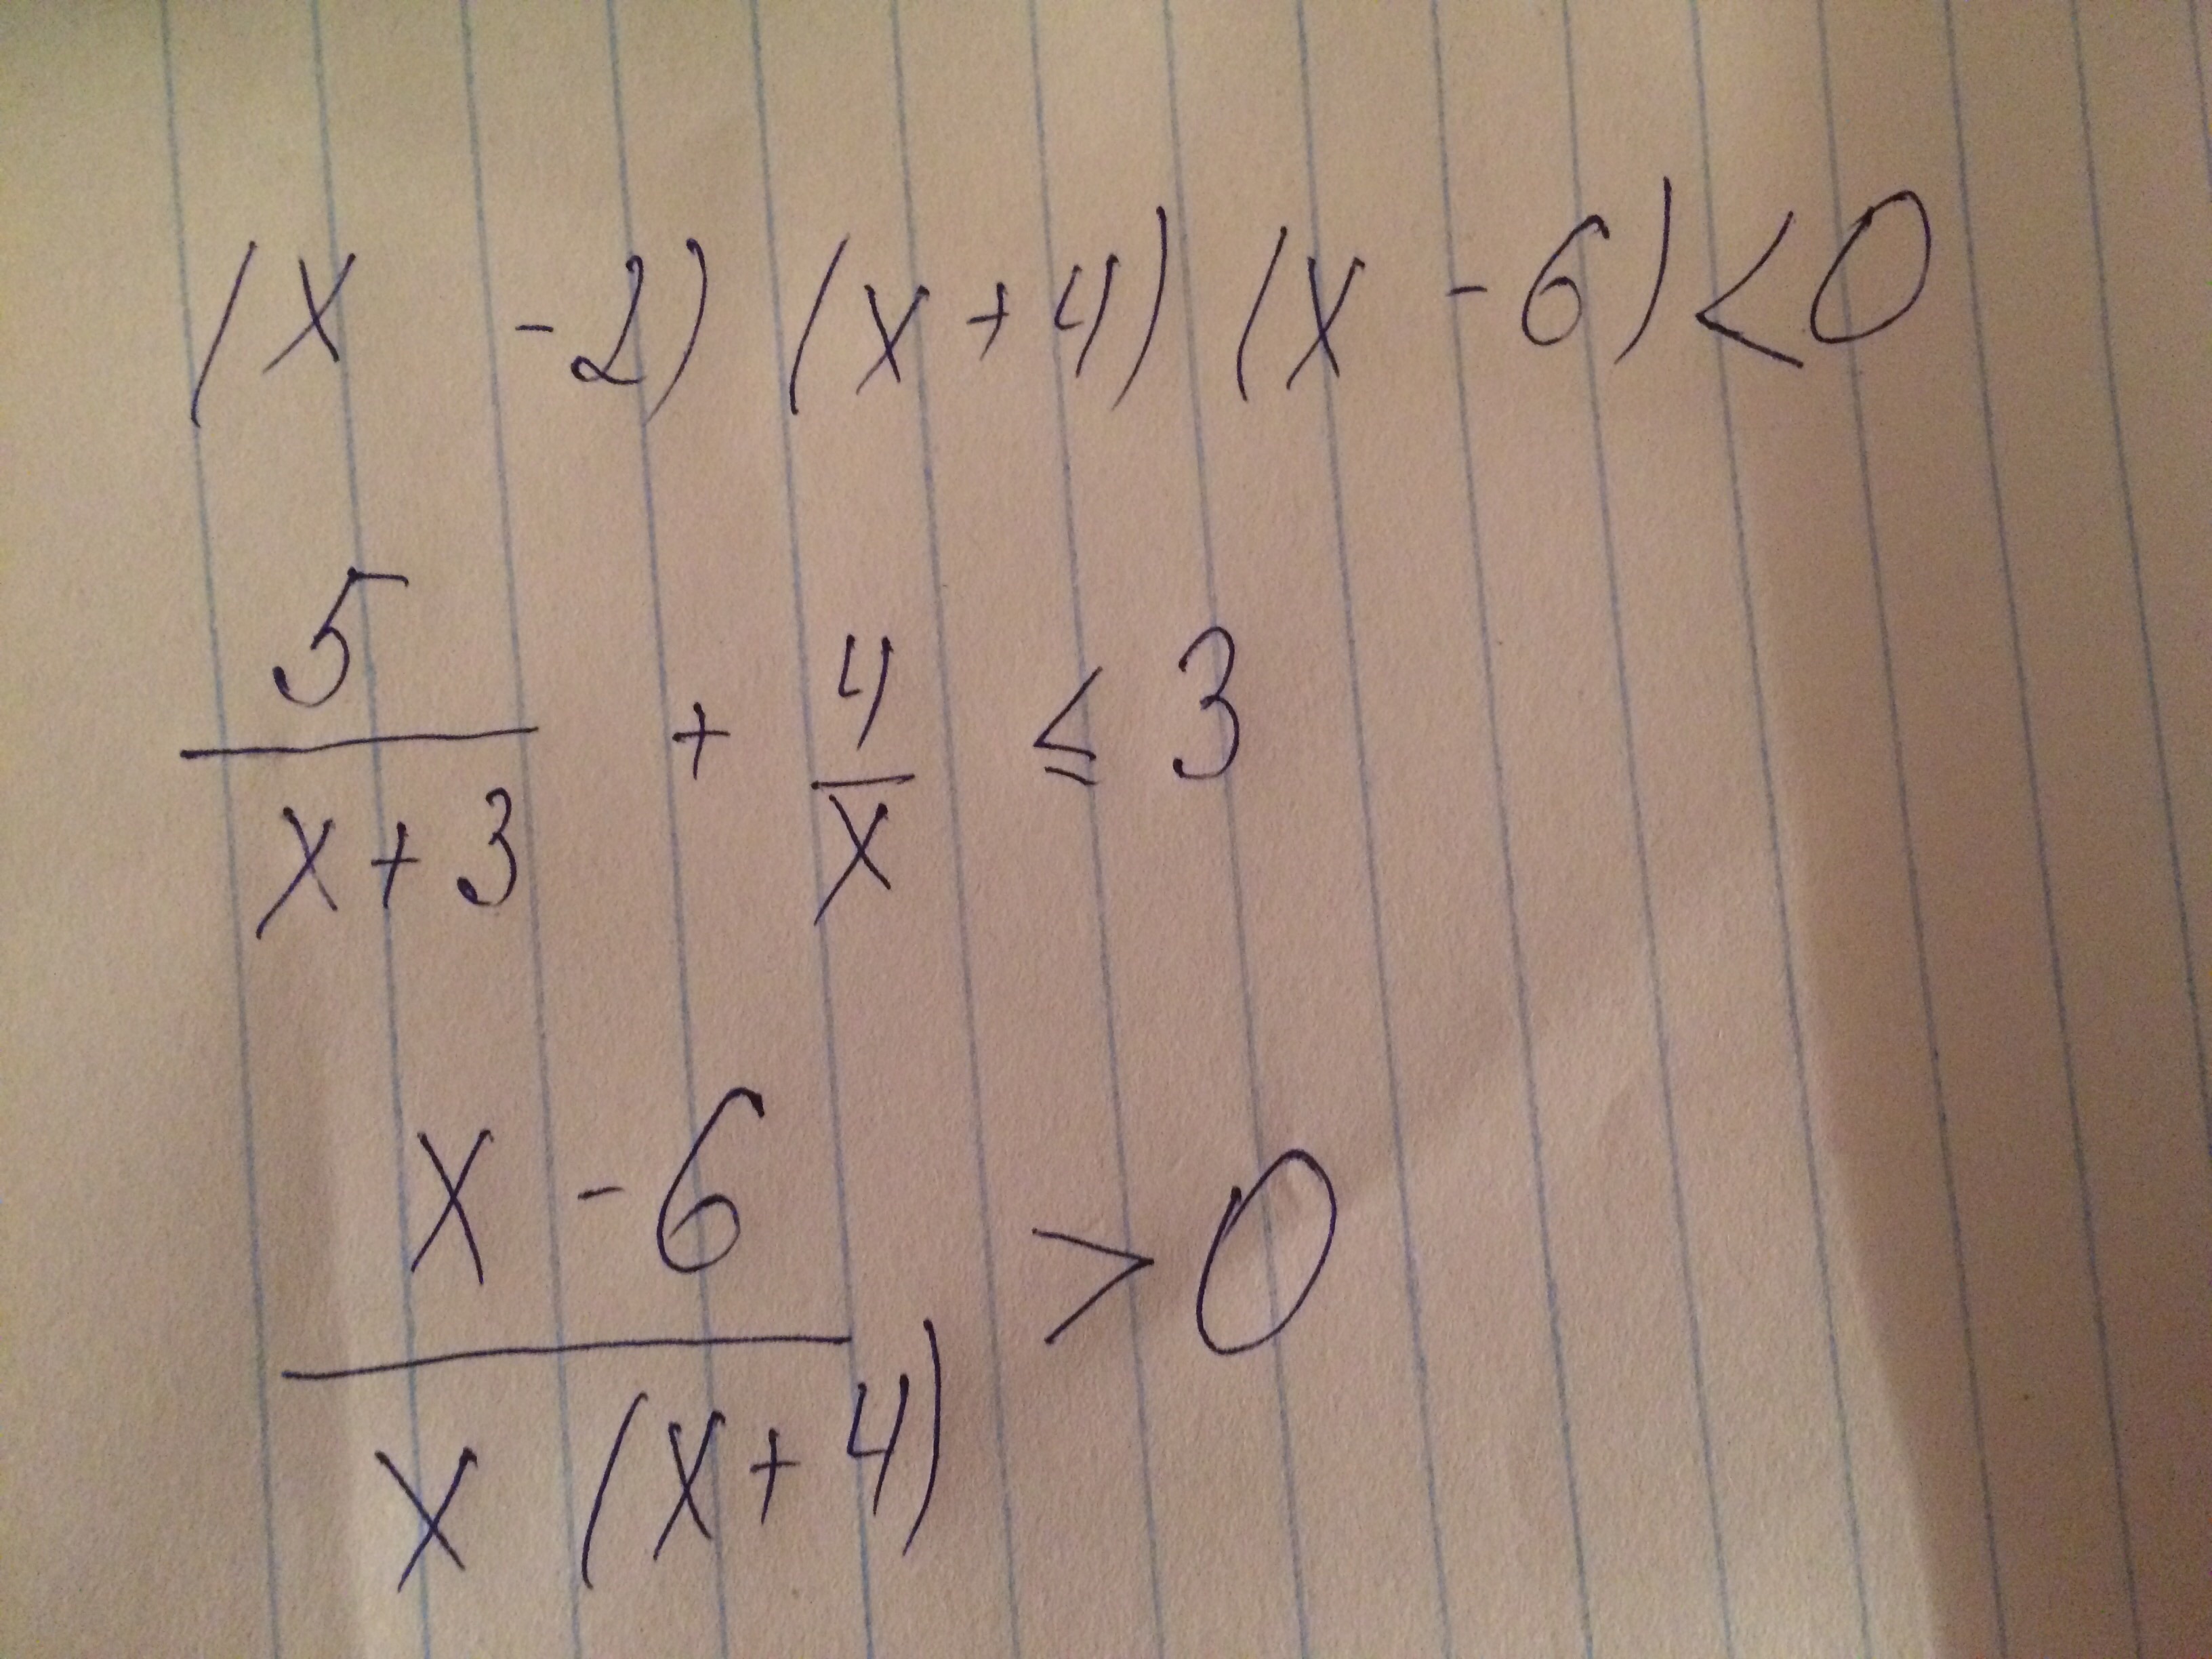 (x - 2) (x + 4) (x - 6) < 0
5/(x + 3) + 4/x ≤ 3
(x - 6)/(x (x + 4)) > 0